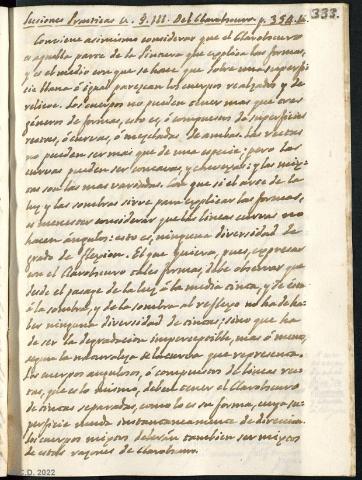 Lecciones Practicas a. §. III. Del Claroobscuro. p. 354. 333.
Conviene asimismo considerar que el Claroobscuro
es aquella parte de la Pintura que explica las formas,
y es el medio con que se hace que sobre una superfi-
cie llana ó igual parezcan los cuerpos realzados y de
relieve. Los cuerpos no pueden tener mas que tres
géneros de formas, esto es, ó compuestos de superficies
rectas, ó curvas, ó mezcladas de ambas. Las rectas
no pueden ser mas que de una especie; pero las
curvas pueden ser concavas, y convexas; y las mix-
tas son las mas variadas. Con que si el arte de la
luz y las sombras sirve para explicar las formas,
es menester considerar que las lineas curvas no
hacen ángulos: esto es, ninguna diversidad de
grado de flexion. El que quiera, pues, expresar
con el Claroobscuro tales formas, debe observar que
desde el parage de la luz, á la media tinta, y de ésta
á la sombra, y de la sombra al reflexo no ha de ha-
ber ninguna diversidad de tintas; sino que ha
de ser la degradacion imperceptible, mas ó menos,
segun la naturaleza de la curva que representa.
Los cuerpos angulosos, ó compuestos de lineas rec-
tas, que es lo mismo, deben tener el Claroobscuro
de tintas separadas, como lo es su forma, cuya su-
perficie muda instantaneamente de direccion.
Los cuerpos mixtos deberán tambien ser mixtos
de estas razones de Claroobscuro.
C.D. 2022